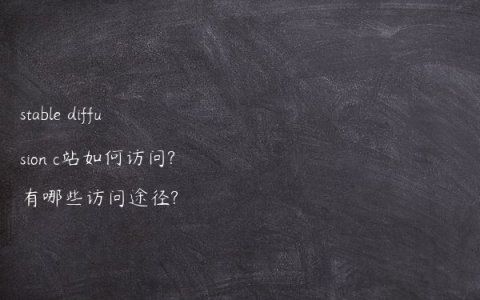 stable diffu
sion c站如何访问?
有哪些访问途径?